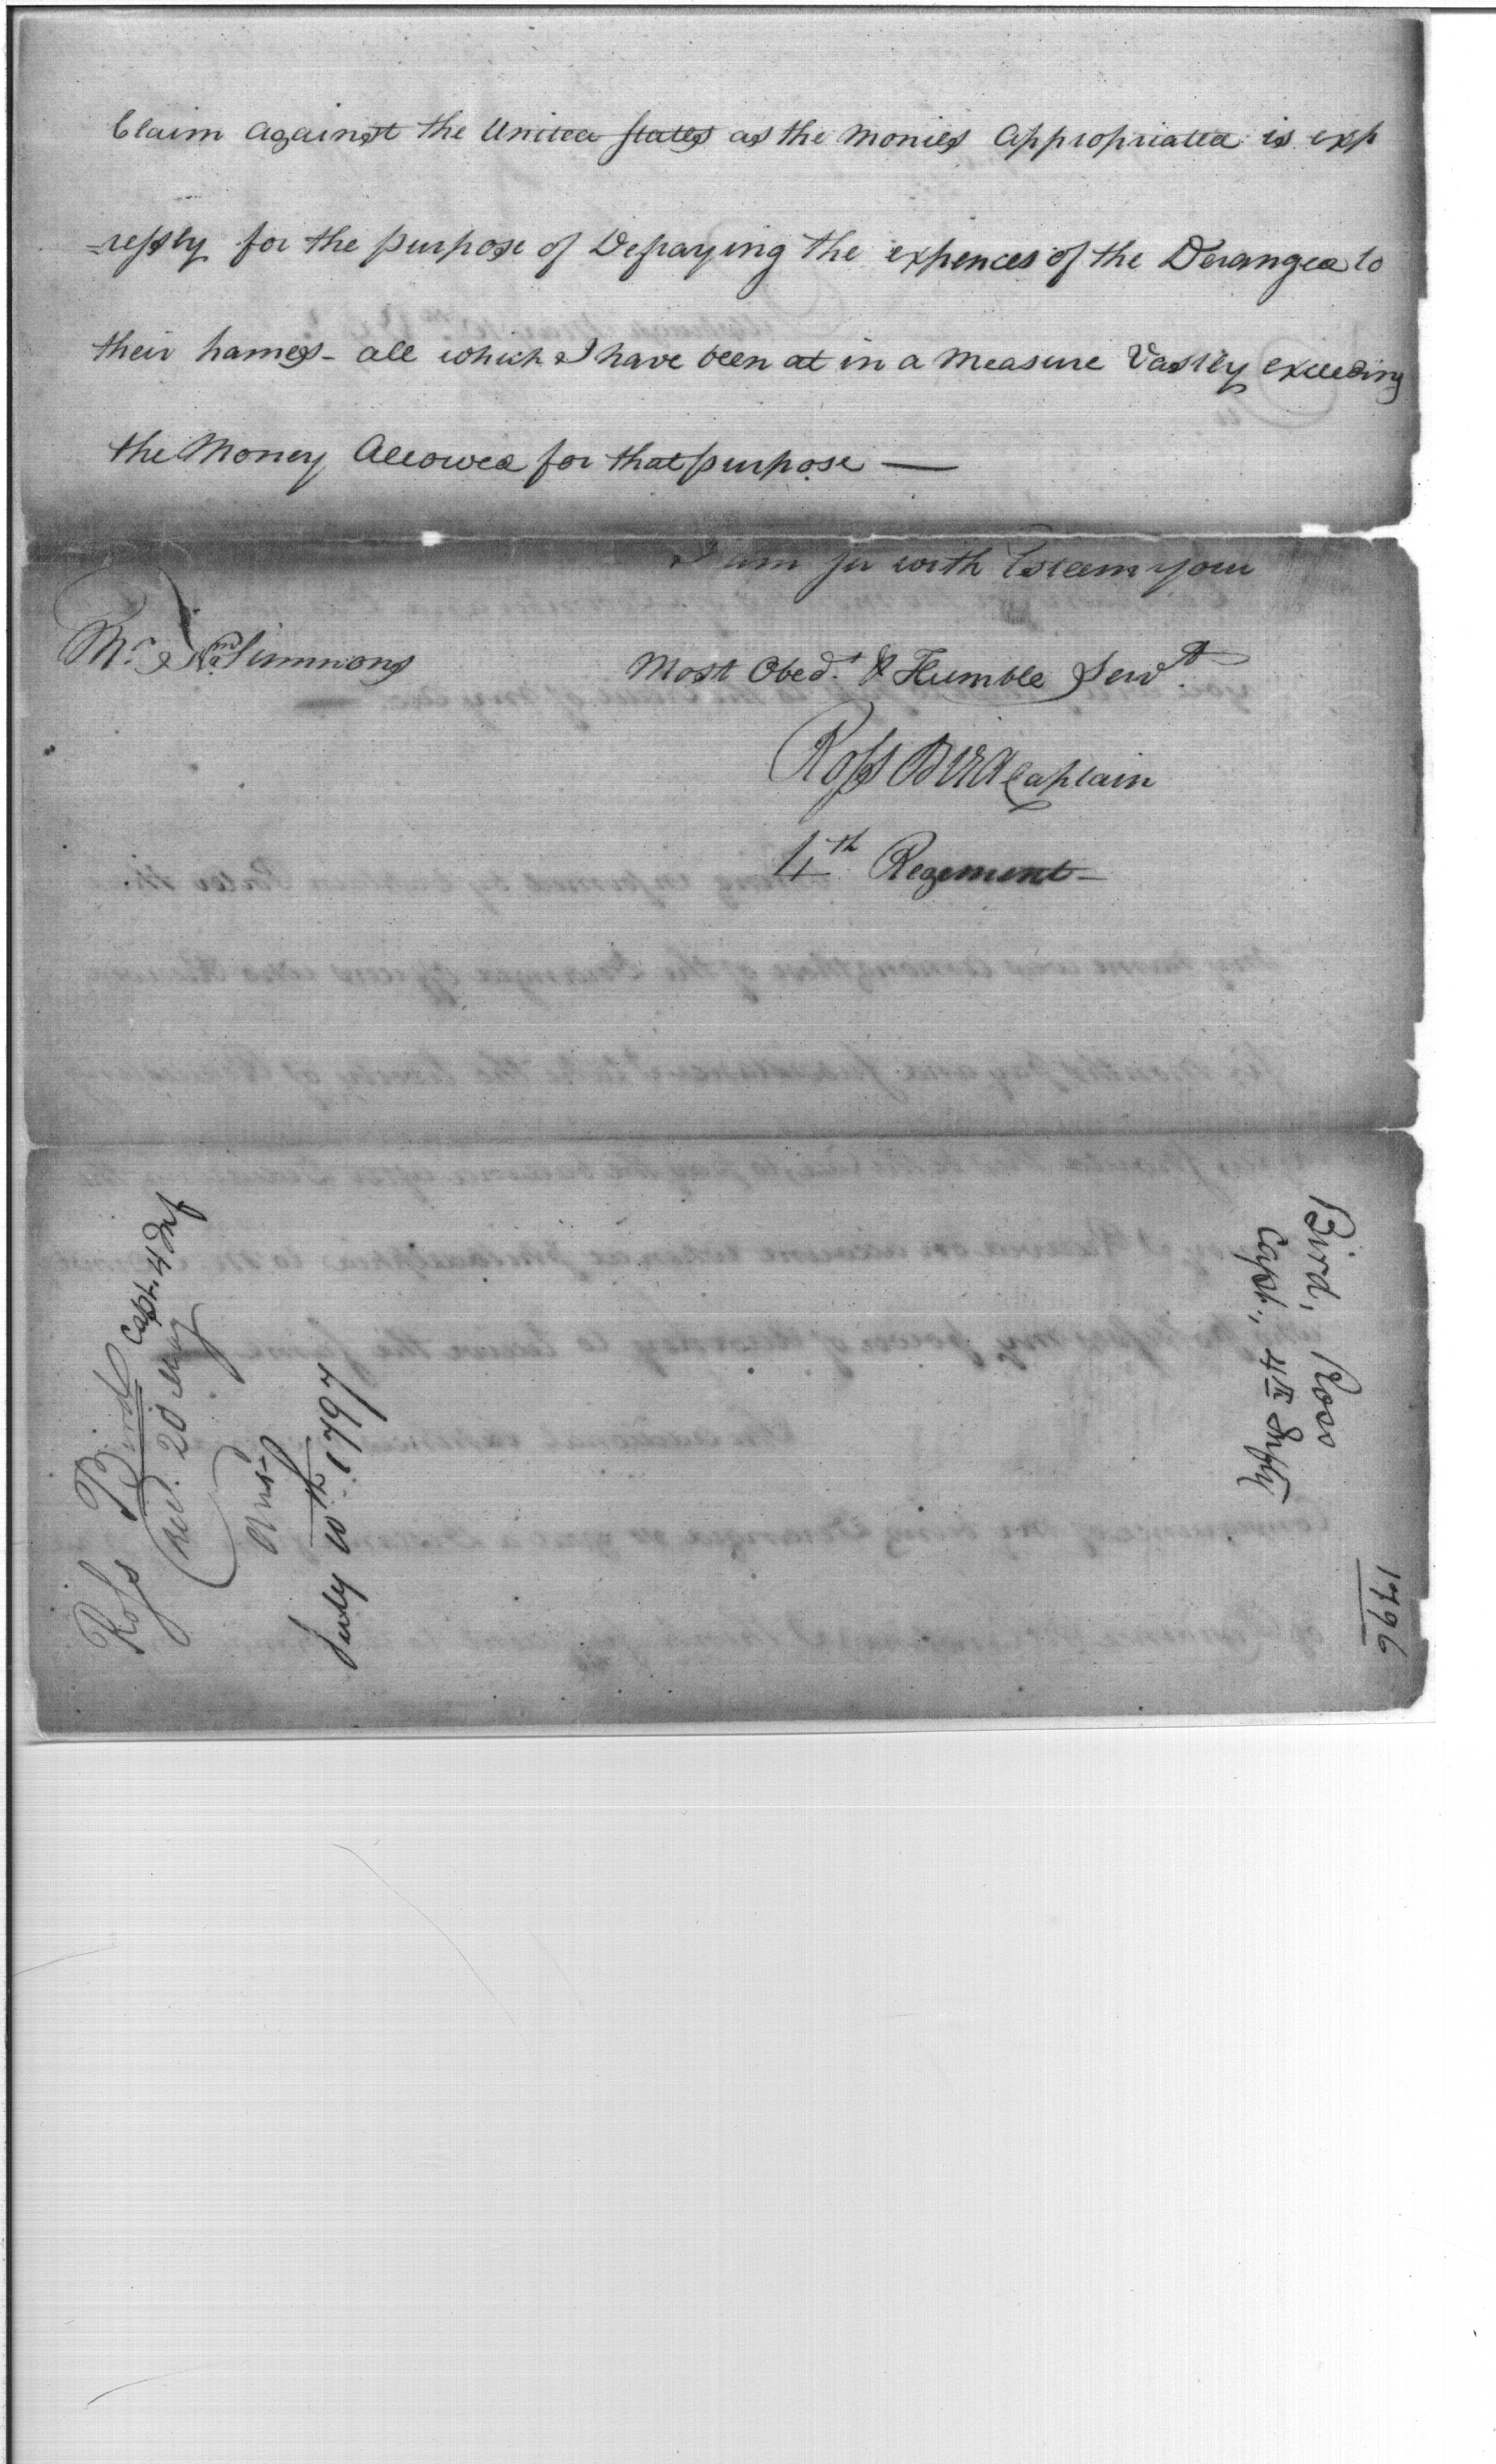 Claim against the United states as the monies appropriated is exp
=ressly for the purpose of Defraying the expences of the Deranged to
their homes - all which I have been at in a measure Vastly exceeding
the Money Allowed for that purpose —
I am Sir with Esteem your
Most Obed.t & Humble Serv.t
Mr. Wm. Simmons
Ross Bird Captain
4th Regement -
Ross Bird Capt. 4 Inf
Recd. 20 May
Ans.d
July 10th. 1797
Bird, Ross
Capt., 4th Infty
1796